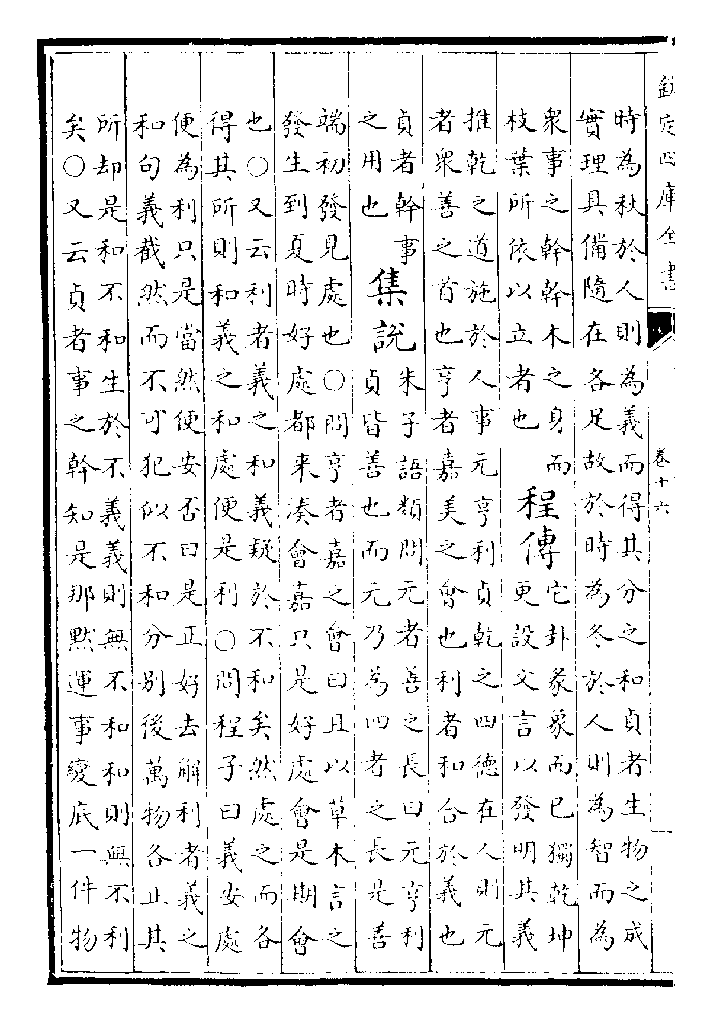 欽定四庫全書
卷十六
時為秋於人則為義而得其分之和貞者生物之成
實理具備隨在各足故於時為冬於人則為智而為
衆事之幹幹木之身而
枝葉所依以立者也
程傳
它卦彖象而已獨乾坤
更設文言以發明其義
推乾之道施於人事元亨利貞乾之四德在人則元
者衆善之首也亨者嘉美之會也利者和合於義也
貞者幹事
之用也
集說
朱子語類問元者善之長曰元亨利
貞皆善也而元乃為四者之長是善
端初發見處也○問亨者嘉之會曰且以草木言之
發生到夏時好處都來湊會嘉只是好處會是期會
也○又云利者義之和義疑於不和矣然處之而各
得其所則和義之和處便是利○問程子曰義安處
便為利只是當然便安否曰是正好去解利者義之
和句義截然而不可犯似不和分别後萬物各止其
所却是和不和生於不義義則無不和和則無不利
矣○又云貞者事之幹知是那默運事變底一件物